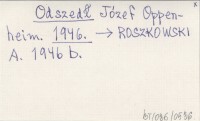 Odszedł Józef Oppen-
heim. 1946. → ROSZKOWSKI
A. 1946 b.